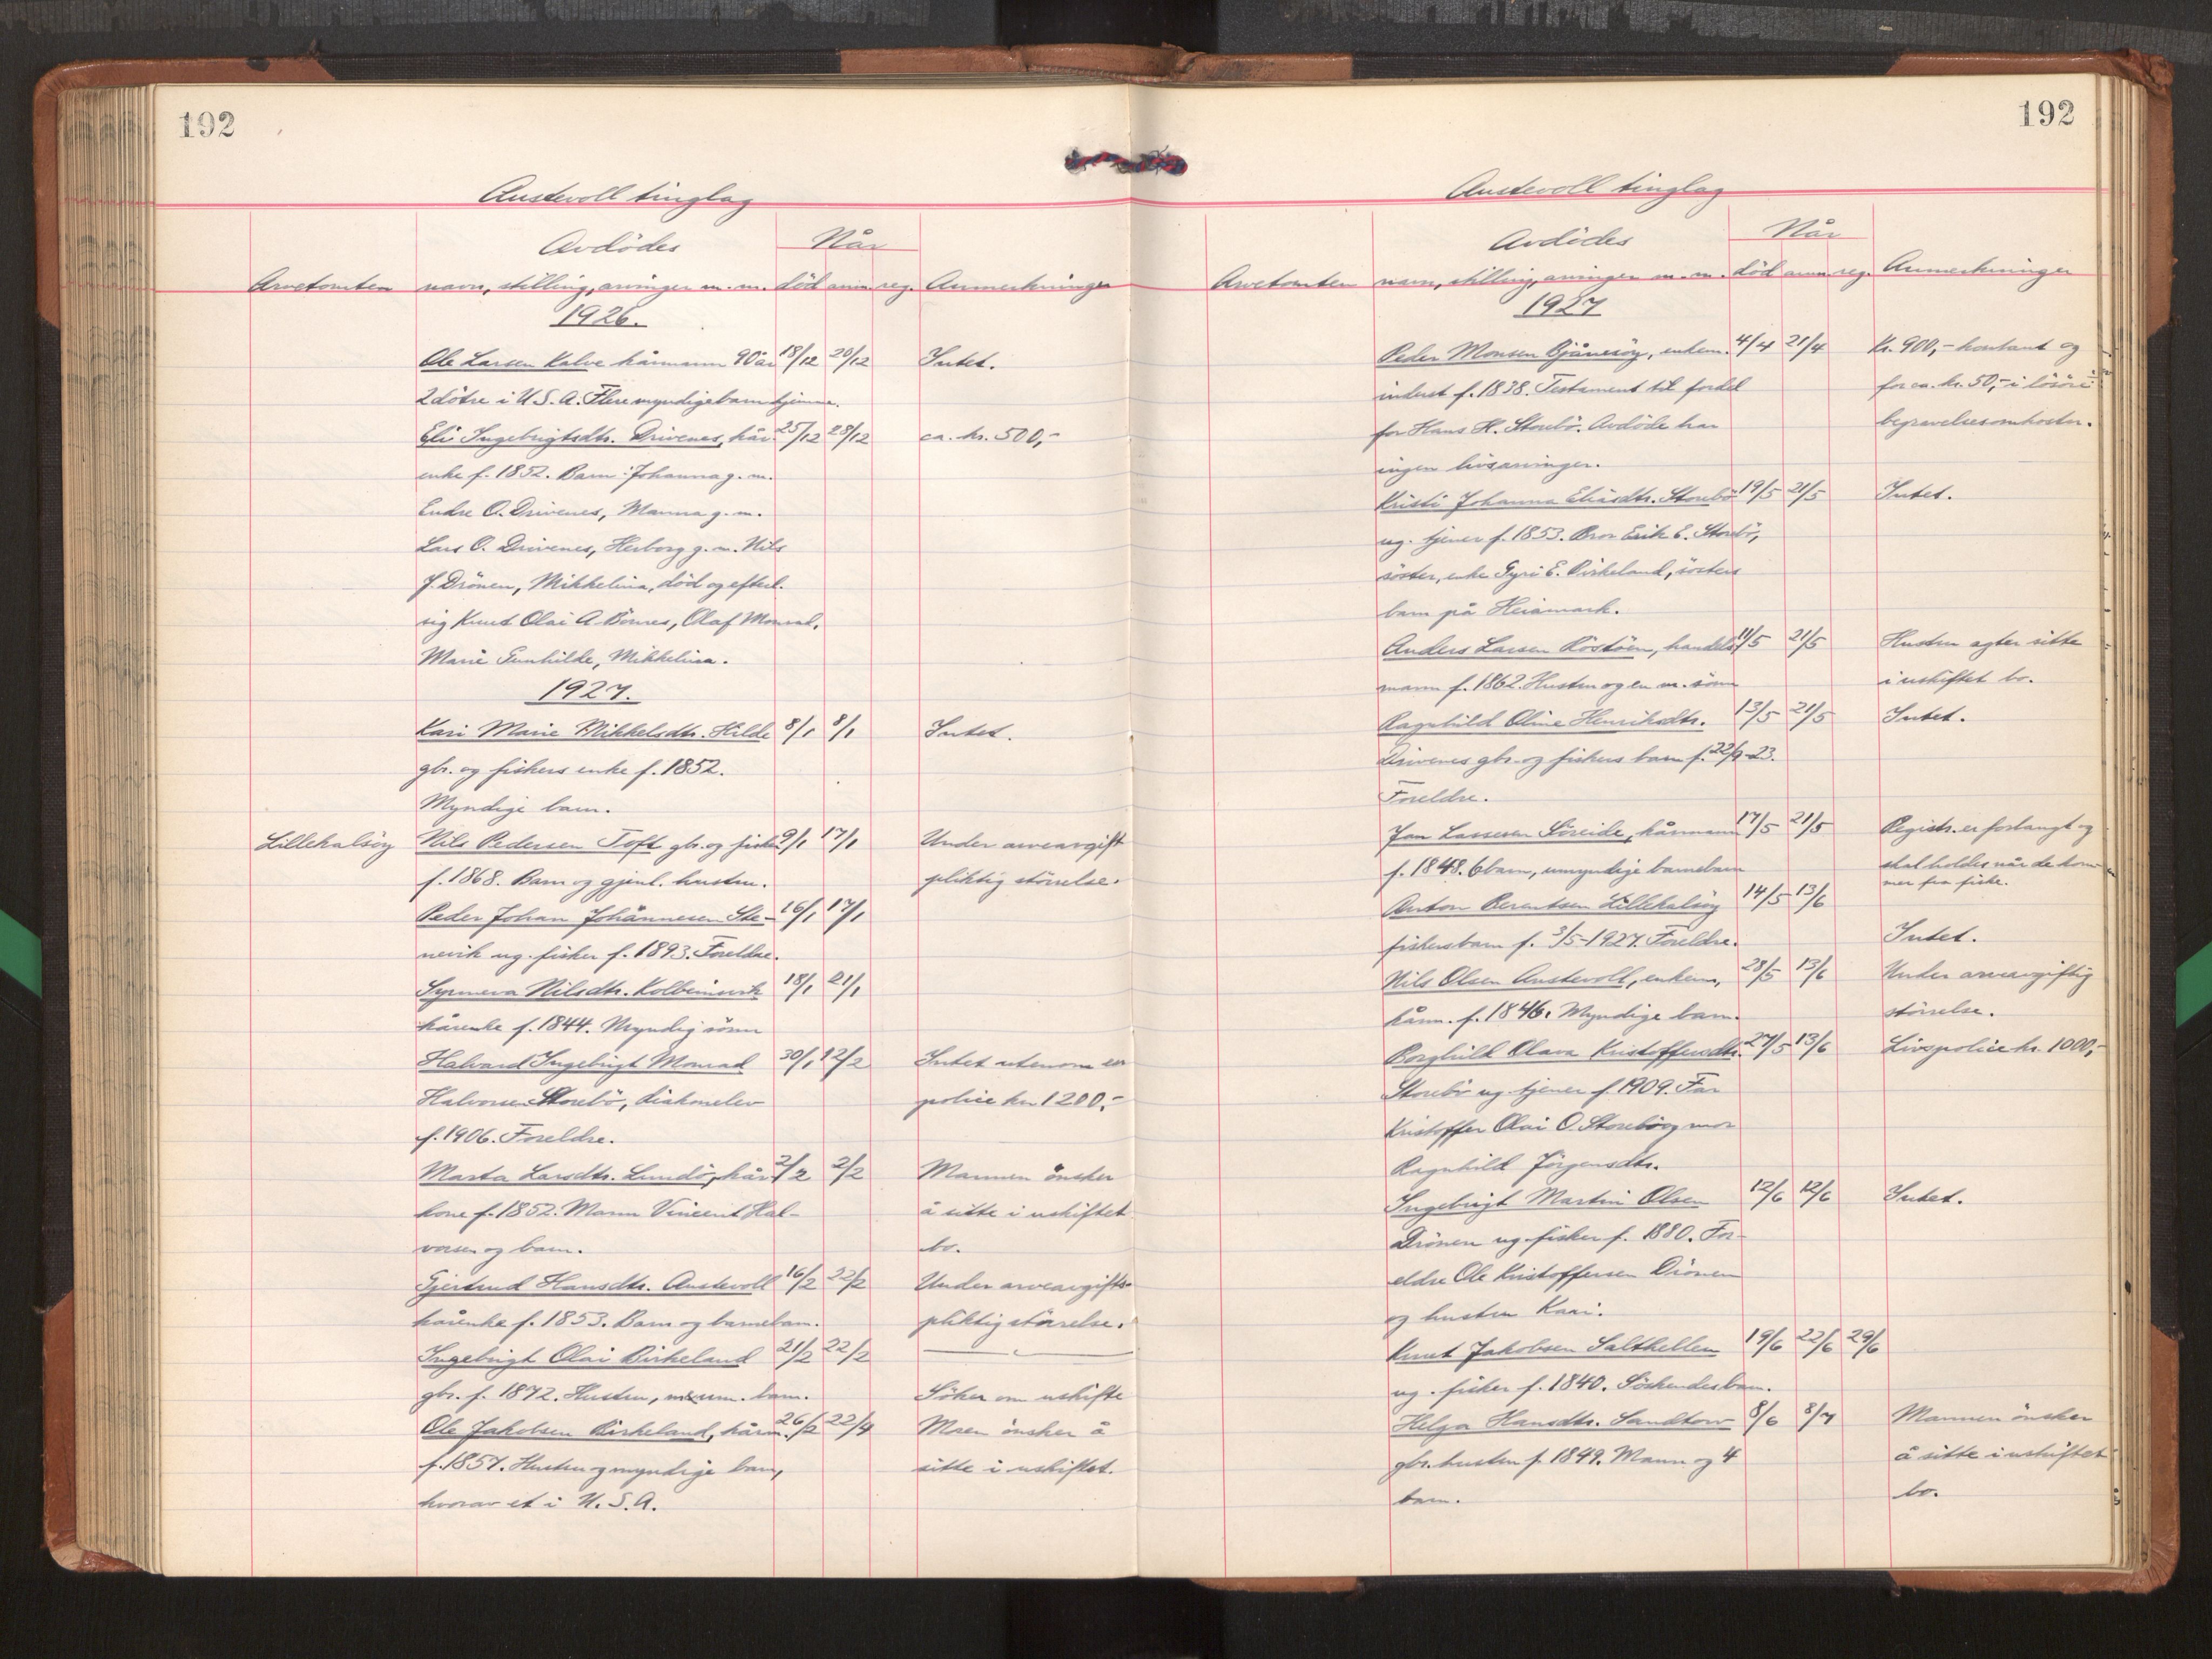 192
Austevoll tinglag
Avdödes Når
Arvetomten navn, stilling, arvinger m. m. död anm. reg. Anmerkninger
1926.
Ole Larsen Kalve kårmann 90 år 18/12 20/12 Intet.
2 dötre i U.S.A. Flere myndige barn hjemme.
Eli Ingebrigtsdtr. Drivenes, kår- 25/12 28/12 ca. kr. 500,-
enke f. 1852. Barn: Johanna g. m.
Endre O. Drivenes, Manna g. m.
Lars O. Drivenes, Herborg g. m. Nils
J. Drönen, Mikkelina, död og efterl.
sig Knut Olai A. Börnes, Olaf Monrad,
Marie Gunhilde, Mikkelina.
1927.
Kari Marie Mikkelsdtr. Hilde 8/1 8/1 Intet.
gbr. og fiskers enke f. 1852.
Myndige barn.
Lillekalsöy Nils Pedersen Toft gbr. og fisker 9/1 17/1 Under arveavgift
f. 1868. Barn og gjenl. hustru. pliktig störrelse.
Peder Johan Johannesen Ste- 16/1 17/1
nevik ug. fisker f. 1893. Foreldre.
Synneva Nilsdtr. Kolbeinsvik 18/1 21/1
kårenke f. 1844. Myndig sönn
Halvard Ingebrigt Monrad 30/1 12/2 Intet utenom en
Halvorsen Storebö, diakonelev police kr. 1200,-
f. 1906. Foreldre.
Marta Larsdtr. Lundö, kår- 2/2 2/2 Mannen önsker
kone f. 1852. Mann Vincent Hal- å sitte i uskiftet
vorsen og barn. bo.
Gjertrud Hansdtr. Austevoll 16/2 22/2 Under arveavgifts-
kårenke f. 1853. Barn og barnebarn. pliktig störrelse.
Ingebrigt Olai Birkeland 21/2 22/2
gbr. f. 1872. Hustru, um. barn. Söker om uskifte
Ole Jakobsen Birkeland, kårm. 26/2 22/4 Moren önsker å
f. 1857. Hustru og myndige barn, sitte i uskiftet.
hvorav et i U.S.A.
192
Austevoll tinglag
Avdödes Når
Arvetomten navn, stilling, arvinger m. m. död anm. reg. Anmerkninger
1927
Peder Monsen Bjånesöy, enkem. 4/4 21/4 Kr. 900,- kontant og
inderst f. 1838. Testament til fordel for ca. kr. 50,- i lösöre ÷
for Hans H. Storebö. Avdöde har begravelsesomkostn.
ingen livsarvinger.
Kristi Johanna Eliasdtr. Storebö 19/5 21/5 Intet.
ug. tjener f. 1853. Bror Erik E. Storebö,
söster, enke Gyri E. Birkeland, sösters
barn på Heiamark.
Anders Larsen Rostöen, handels- 11/5 21/5 Hustru agter sitte
mann f. 1862. Hustru og en m. sönn i uskiftet bo.
Ragnhild Oline Henriksdtr. 13/5 21/5 Intet.
Drivenes gbr. og fiskers barn f. 22/9-23.
Foreldre.
Jan Lassesen Söreide, kårmann 17/5 21/5 Registr. er forlangt og
f. 1848. 6 barn, umyndige barnebarn skal holdes når de kom-
mer fra fiske.
Anton Berentsen Lillekalsöy 14/5 13/6
fiskersbarn f. 3/5-1927. Foreldre. Intet.
Nils Olsen Austevoll, enkem., 28/5 13/6 Under arveavgiftig
kårm. f. 1846. Myndige barn. störrelse.
Borghild Olava Kristoffersdtr. 27/5 13/6 Livspolice kr. 1000,-
Storebö ug. tjener f. 1909. Far
Kristoffer Olai O. Storebö og mor
Ragnhild Jörgensdtr.
Ingebrigt Martin Olsen 12/6 12/6 Intet.
Drönen ug. fisker f. 1880. For-
eldre Ole Kristoffersen Drönen
og hustru Kari.
Knut Jakobsen Salthellen 19/6 22/6 29/6
ug. fisker f. 1840. Söskendesbarn.
Helga Hansdtr. Sandtorv 8/6 8/7 Mannen önsker
gbr. hustru f. 1849. Mann og 4 å sitte i uskiftet
barn. bo.